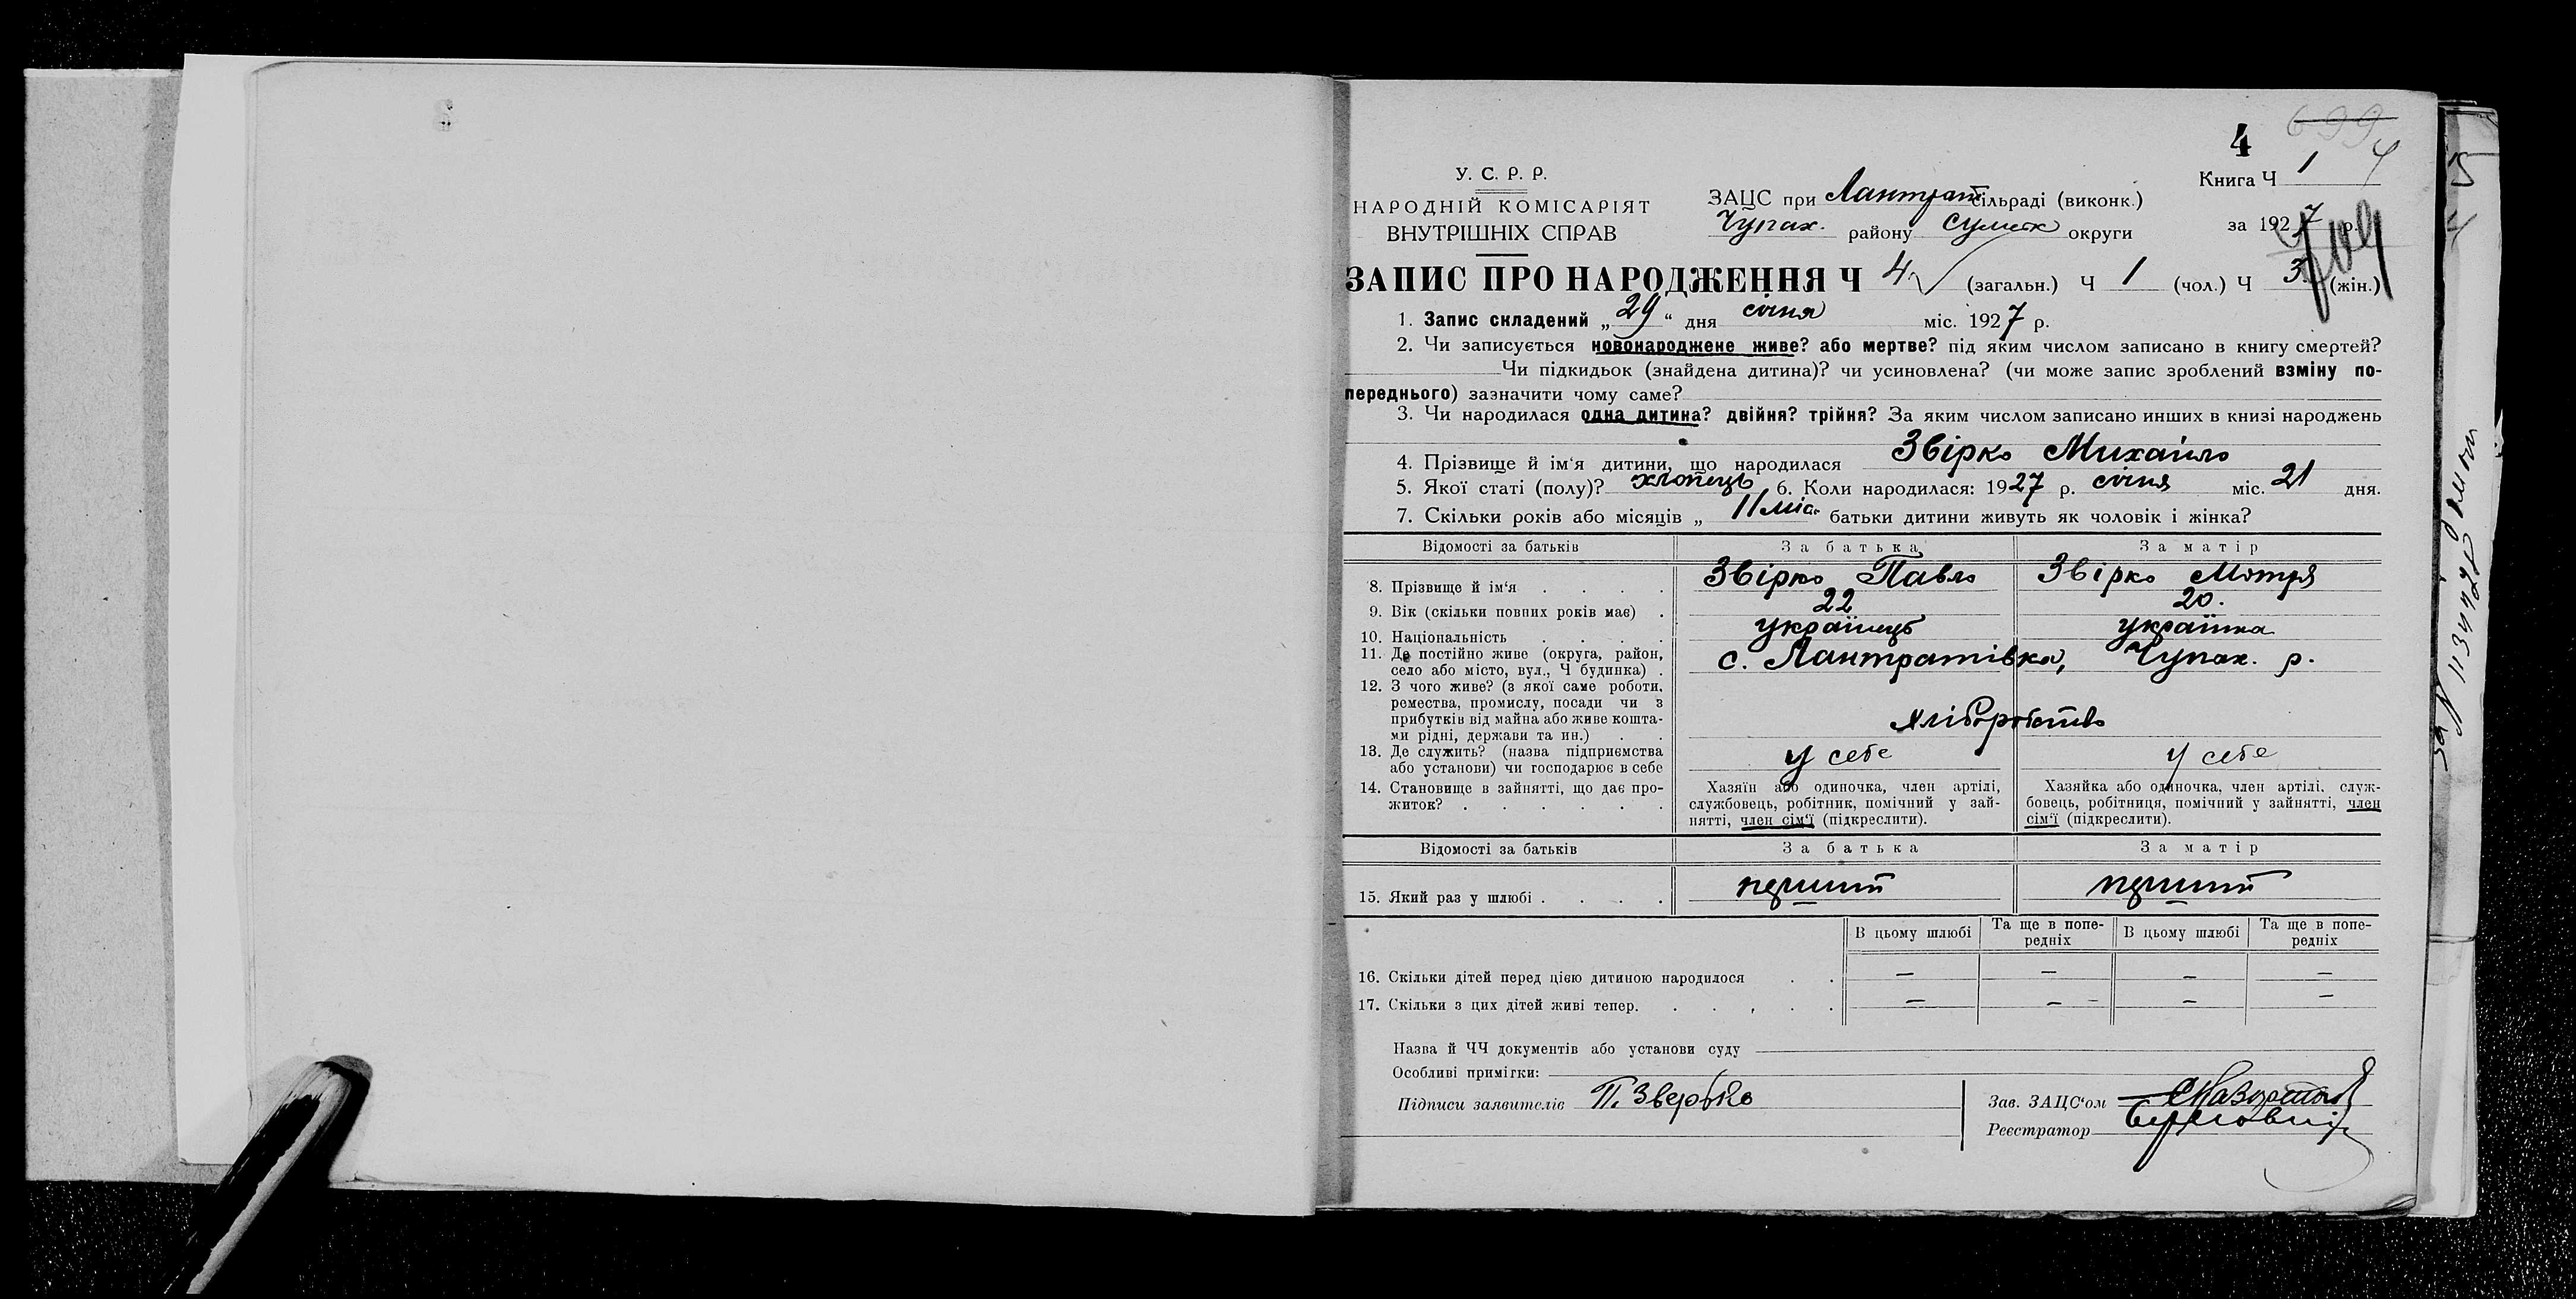 4
Книга Ч 1
4
У. С. Р. Р.
НАРОДНІЙ КОМІСАРІЯТ
ВНУТРІШНІХ СПРАВ
ЗАЦС при Лантрат сільраді (виконк.)
Чупах. району Сумськ округи
за 1927 р.
ЗАПИС ПРО НАРОДЖЕННЯ Ч 4 (загальн.) Ч 1 (чол.) Ч 3 (жін.)
1. Запис складений „29“ дня січня міс. 1927 р.
2. Чи записується новонароджене живе? або мертве? під яким числом записано в книгу смертей?
Чи підкидьок (знайдена дитина)? чи усиновлена? (чи може запис зроблений взміну по-
переднього) зазначити чому саме?
3. Чи народилася одна дитина? двійня? трійня? За яким числом записано инших в книзі народжень
4. Прізвище й ім‘я дитини, що народилася Звірко Михайло
5. Якої статі (полу)? хлопець 6. Коли народилася: 1927 р. січня міс. 21 дня.
7. Скільки років або місяців „ 11 міс. батьки дитини живуть як чоловік і жінка?
Відомості за батьків За батька За матір
8. Прізвище й ім‘я . . . . Звірко Павло Звірко Мотря
9. Вік (скільки повних років має) . 22 20.
10. Національність . . . . українець українка
11. Де постійно живе (округа, район,
село або місто, вул., Ч будинка) . с. Лантратівка, Чупах. р.
12. З чого живе? (з якої саме роботи,
ремества, промислу, посади чи з
прибутків від майна або живе кошта-
ми рідні, держави та ин.) . . хліборобство
13. Де служить? (назва підприємства
або установи) чи господарює в себе у себе у себе
14. Становище в зайнятті, що дає про-
житок? . . . . . .
Хазяїн або одиночка, член артілі,
службовець, робітник, помічний у зай-
нятті, член сім‘ї (підкреслити).
Хазяйка або одиночка, член артілі, служ-
бовець, робітниця, помічний у зайнятті, член
сім‘ї (підкреслити).
Відомості за батьків За батька За матір
15. Який раз у шлюбі . . . . перший перший
В цьому шлюбі Та ще в попе-
редніх В цьому шлюбі Та ще в попе-
редніх
16. Скільки дітей перед цією дитиною народилося . . — — — —
17. Скільки з цих дітей живі тепер. . . . . . — — — —
Назва й ЧЧ документів або установи суду
Особливі примігки:
Підписи заявителів П. Звербко
Зав. ЗАЦС‘ом
Реєстратор